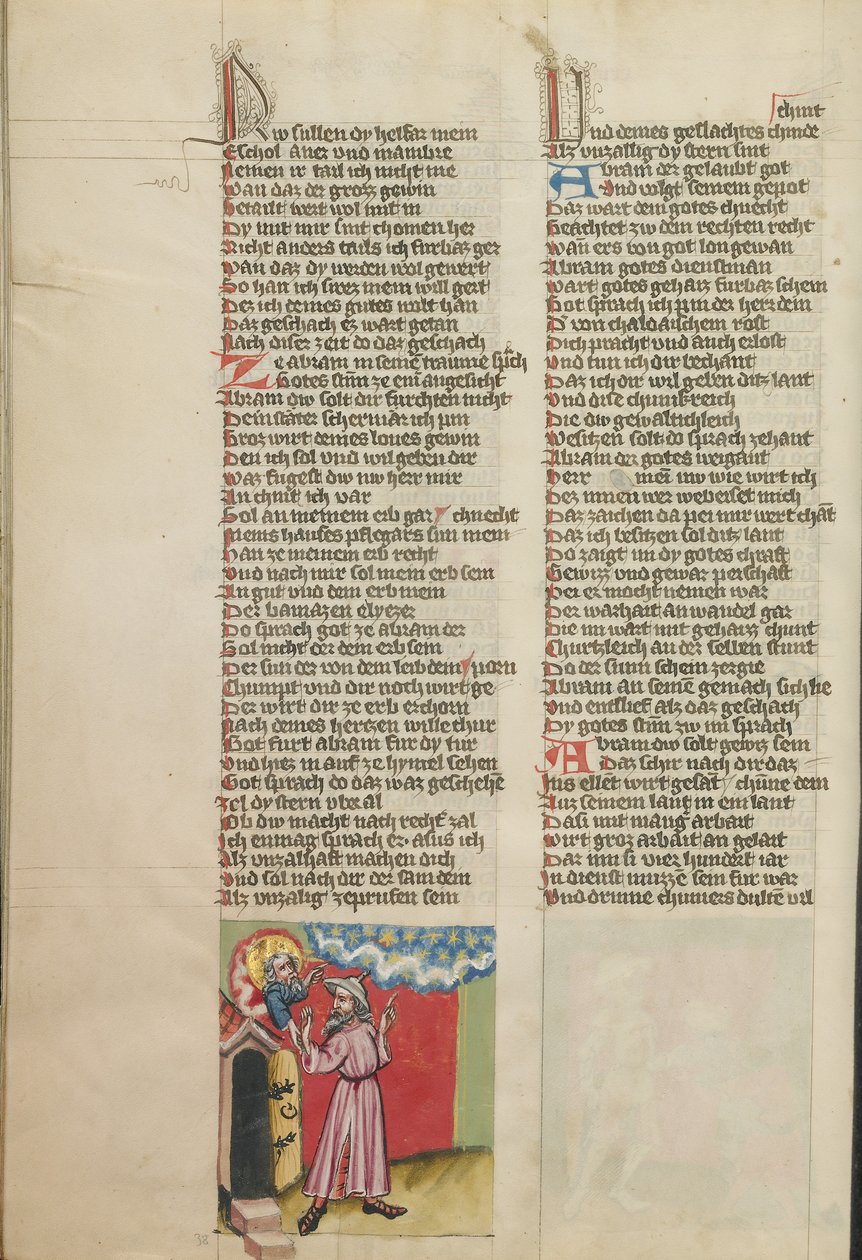 Dw sullen dy helfar mein
Eschol aner vnd mambre
Nemen ir tail ich nicht me
Wan daz der grozz gewin
Getailt wert wol mit in
Dy mit mir sint chomen her
Nicht anders tails ich furbaz ger
Wan daz dy werden wol gewert
So han ich swez mein will gert
Dez ich deines gutes wolt han
Daz geschach ez wart getan
Nach diser zeit do daz geschach
Ze abram in seinē traume sprach
Gotes stim ze eim angesicht
Abram dw solt dir furchten nicht
Dein stäter schermär ich pin
Groz wirt deines lones gewin
Den ich sol vnd wil geben dir
Waz fugest dw nw herr mir
An chint ich var
Sol an meinem erb gar chnecht
Meins hauses pflegärs sun mein
Han ze meinem erb recht
Vnd nach mir sol mein erb sein
An gut vnd dem erb mein
Der damazen elyezer
Do sprach got ze abram der
Sol nicht der dein erb sein
Der sun der von dem leib dein porn
Chumpt vnd dir noch wirt ge
Der wirt dir ze erb erchorn
Nach deines hertzen wille chur
Got furt abram fur dy tur
Vnd hiez in auf ze hymel sehen
Got sprach do daz waz geschehē
Zel dy stern vberal
Ob dw macht nach recht zal
Ich enmag sprach er asus ich
Alz vnzalhaft machen dich
Vnd sol nach dir der sam dein
Alz vnzalig ze prufen sein
chint
Vnd deines geslachtes chinde
Alz vnzallig dy stern sint
Abram der gelaubt got
Vnd volgt seinem gepot
Daz wart dem gotes chnecht
Geachtet zw dem rechten recht
Wan ers von got lon gewan
Abram gotes dienstman
Wart gotes gehaiz furbaz schein
Got sprach ich pin der herr dein
Der von chaldaischem rost
Dich pracht vnd auch erlost
Vnd tun ich dir bechant
Daz ich dir wil geben ditz lant
Vnd dise chunikreich
Die dw gewaltichleich
Wesitzen solt do sprach zehant
Abram der gotes weigant
Herr mein nw wie wirt ich
Dez innen wer weweiset mich
Daz zaichen da pei mir wert chāt
Daz ich besitzen sol ditz lant
Do zaigt im dy gotes chraft
Gewizz vnd gewar perschaft
Pei er mocht nemen war
Der warhait an wandel gar
Die im wart mit gehaizz chunt
Churtzleich an der selben stunt
Do der sunn schein zergie
Abram an seinē gemach sich lie
Vnd entslief alz daz geschach
Dy gotes stim zw im sprach
Abram dw solt gewis sein
Daz schir nach dir daz
Ins ellent wirt gesat chunne dein
Auz seinem lant in ein lant
Da si mit manger arbait
Wirt groz arbait an gelait
Dar inn si vier hundert iar
In dienst muzzē sein fur war
Vnd drinne chumers dultē vil
38